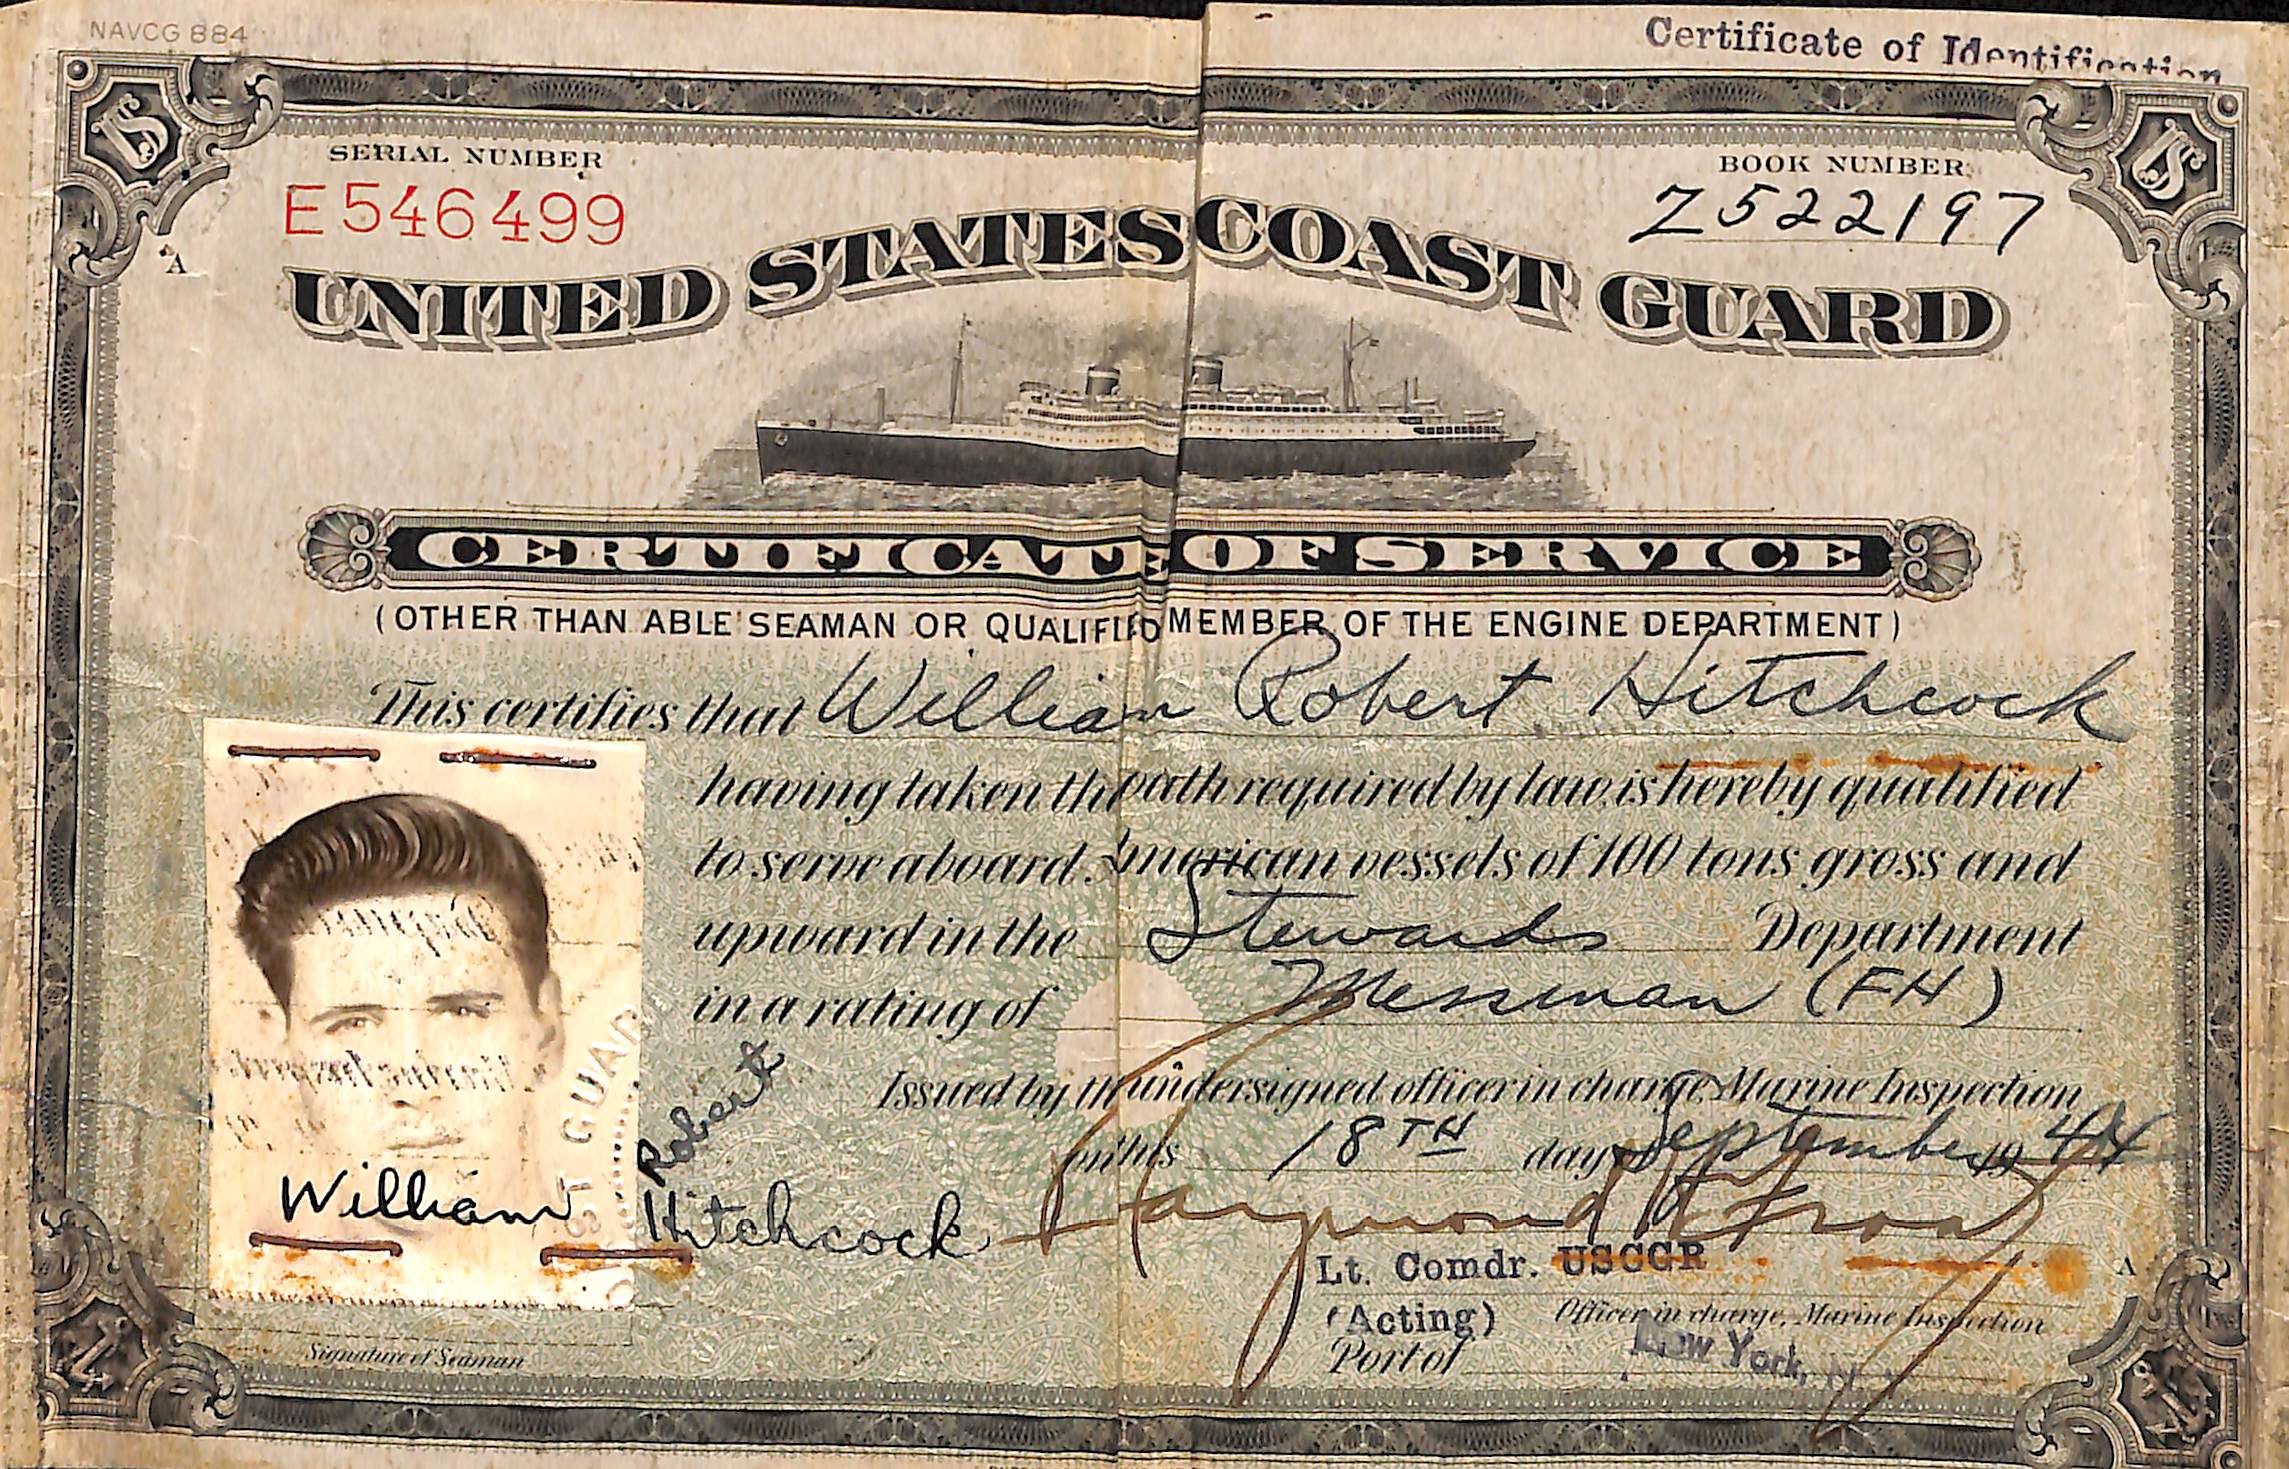 NAVCG 884
Certificate of Identification
SERIAL NUMBER
BOOK NUMBER
E546499
Z522197
A
UNITED STATES COAST GUARD
CERTIFICATE OF SERVICE
(OTHER THAN ABLE SEAMAN OR QUALIFIED MEMBER OF THE ENGINE DEPARTMENT)
This certifies that William Robert Hitchcock
having taken the oath required by law, is hereby qualified
to serve aboard American vessels of 100 tons gross and
upward in the Stewards Department
in a rating of Messman (FH)
Issued by the undersigned officer in charge, Marine Inspection
on this 18TH day September 1944
ST GUAR
William Robert Hitchcock
Raymond
Lt. Comdr. USCGR
A
(Acting) Officer in charge, Marine Inspection
Port of New York, N. Y.
Signature of Seaman